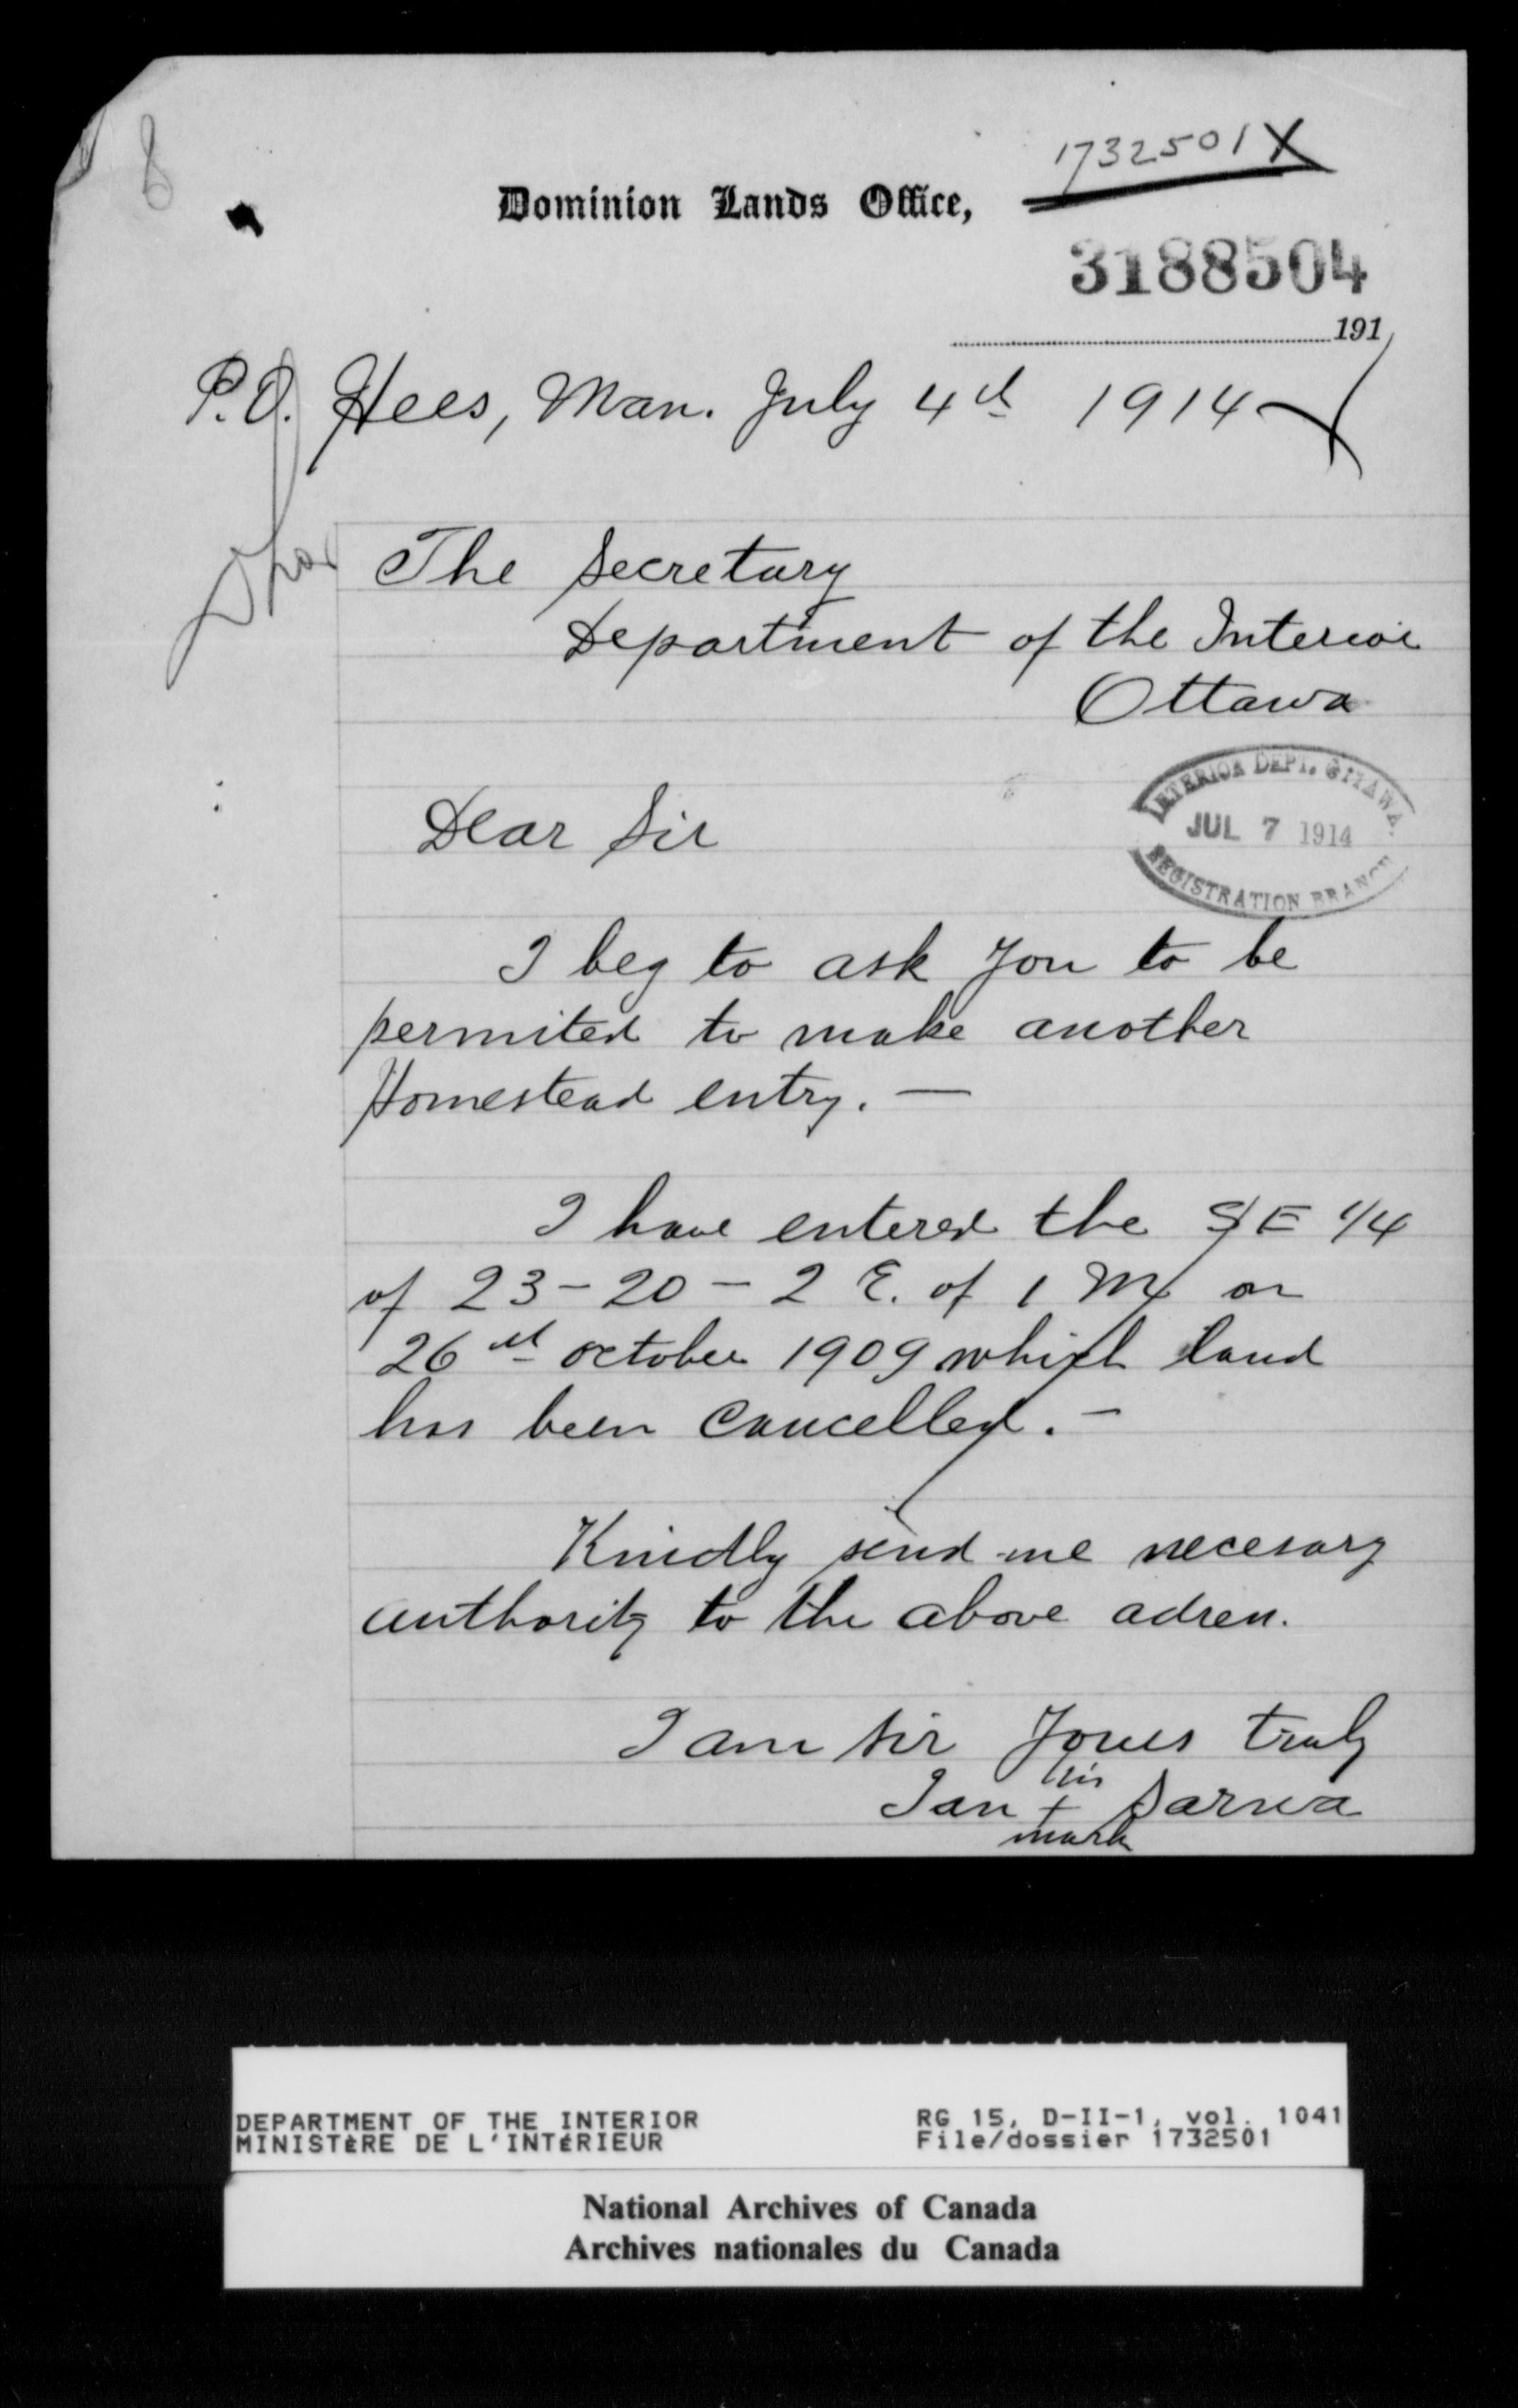 8
1732501X
Dominion Lands Office,
3188504
191
P.O. Hees, Man. July 4th 1914
The Secretary
Department of the Interior
Ottawa
INTERIOR DEPT. OTTAWA.
JUL 7 1914
REGISTRATION BRANCH
Dear Sir
I beg to ask You to be
permited to make another
Homestead entry. —
I have entered the SE 1/4
of 23-20-2 E. of 1 M. on
26th october 1909 which land
has been cancelled. —
Kindly send me necesary
authority to the above adress.
I am Sir Yours truly
his
Jan + Sarwa
mark
DEPARTMENT OF THE INTERIOR RG 15, D-II-1, vol. 1041
MINISTÈRE DE L'INTÉRIEUR File/dossier 1732501
National Archives of Canada
Archives nationales du Canada